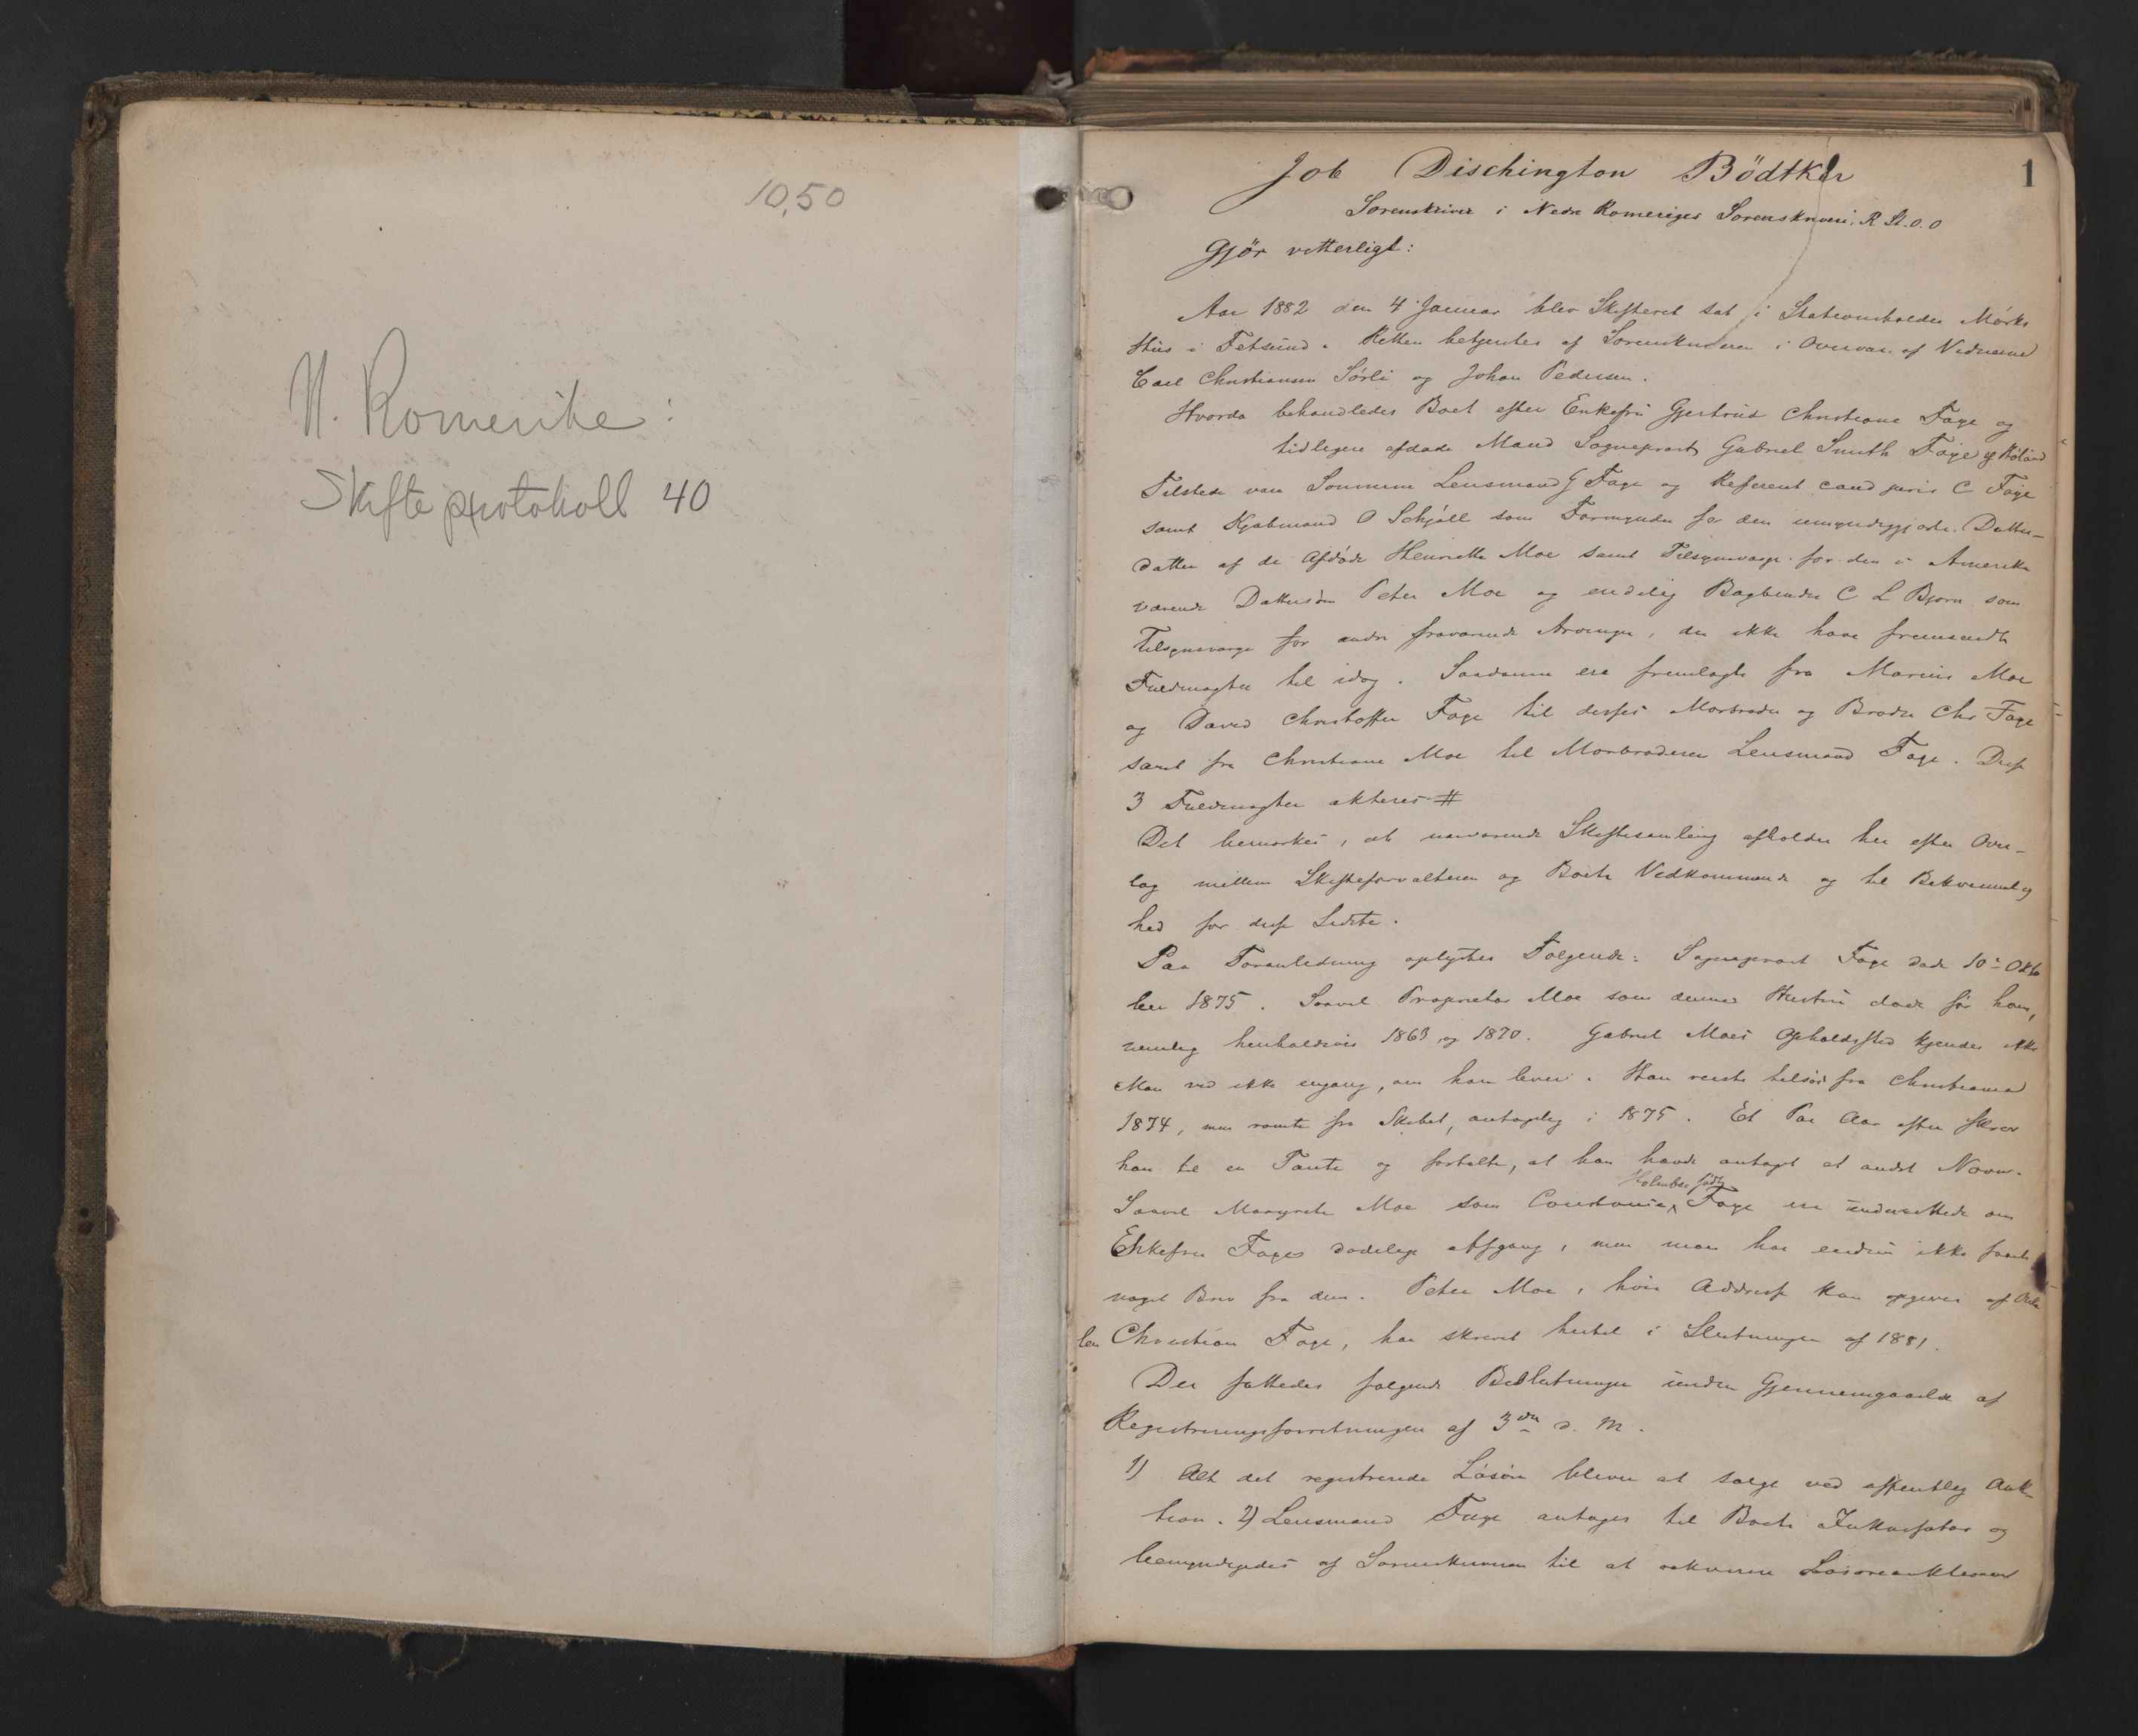 10,50
N. Romerike:
Skifteprotokoll 40
1
Job Dischington Bödtker
Sorenskriver i Nedre Romeriges Sorenskriveri, R St. O. O
Gjör vitterligt:
Aar 1882 den 4 Januar blev Skifteret sat i Stationsholder Mørks
Hus i Fetsund. Retten betjentes af Sorenskriveren i Overvær af Vidnerne
Carl Christiansen Sörli og Johan Pedersen.
Hvorda behandledes Boet efter Enkefru Gjertrud Christiane Faye og
tidligere afdøde Mand Sogneprest Gabriel Smith Faye af
Tilstede vare Sønnerne Lensmand G Faye og Referent cand juris C Faye
samt Kjøbmand O Schjöll som Formynder for den umyndiggjorte Datter-
datter af de Afdøde Henriette Moe samt Tilsynsværge for den i Amerika
værende Dattersøn Peter Moe og endelig Bagbinder C L Bjørn som
Tilsynsværge for andre fraværende Arvinger, der ikke have fremsendt
Fuldmagter til idag. Saadanne ere fremlagte fra Marius Moe
og David Christoffer Faye til deres Morbroder og Broder Chr Faye
samt fra Christiane Moe til Morbroderen Lensmand Faye. Disse
3 Fuldmagter akteres #
Det bemærkes, at nærværende Skiftesamling afholdes her efter Over-
lag mellem Skifteforvalteren og Boets Vedkommende og til Bekvemmelig
hed for disse Sidste.
Paa Foranledning oplystes Følgende: Sogneprest Faye døde 10de Okto
ber 1875. Saavel Proprietær Moe som dennes Hustru døde før ham,
nemlig henholdsvis 1863 og 1870. Gabriel Moes Opholdssted kjendes ikke
Man ved ikke engang, om han lever. Han reiste tilsøs fra Christiania
1874, men rømte fra Skibet, antagelig i 1875. Et Par Aar efter skrev
han til en Tante og fortalte, at han havde antaget et andet Navn.
Holmboe födt
Saavel Margrete Moe som Constance Faye ere underrettede om
Enkefru Fayes dødelige Afgang, men man har endnu ikke faaet
noget Brev fra dem. Peter Moe, hvis Addresse kan opgives af Onke
len Christian Faye, har skrevet hertil i Slutningen af 1881.
Der fattedes følgende Beslutninger under Gjennemgaaelse af
Registreringsforretningen af 3die d. M.
1) Alt det registrerede Løsøre bliver at sælge ved offentlig Auk-
tion. 2) Lensmand Faye antages til Boets Inkassator og
bemyndigedes af Sorenskriveren til at rekvirere Løsøreauktionen